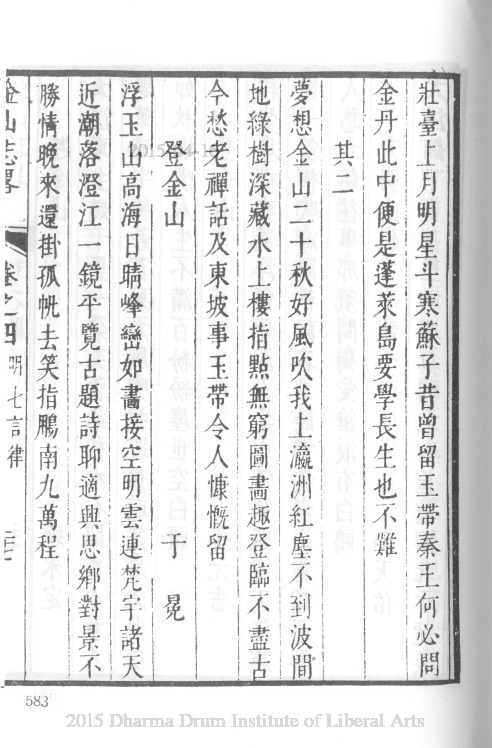 壯臺上月明星斗寒蘇子昔曾留玉帶秦王何必問
金丹此中便是蓬萊島要學長生也不難
其二
夢想金山二十秋好風吹我上瀛洲紅塵不到波間
地綠樹深藏水上樓指點無窮圖畫趣登臨不盡古
今愁老禪話及東坡事玉帶令人慷慨留
登金山 于冕
浮玉山高海日晴峰巒如畫接空明雲連梵宇諸天
近潮落澄江一鏡平覽古題詩聊適興思鄉對景不
勝情晚來還掛孤帆去笑指鵬南九萬程
金山志畧 卷之四 明七言律
583
2015 Dharma Drum Institute of Liberal Arts